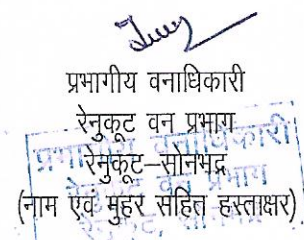 प्रभागीय वनाधिकारी
रेनुकूट वन प्रभाग
रेनुकूट–सोनभद्र
(नाम एवं मुहर सहित हस्ताक्षर)
प्रभागीय वनाधिकारी
वन प्रभाग